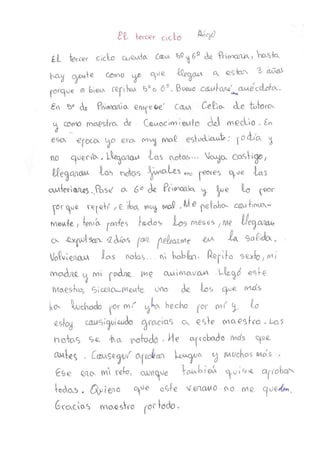 El tercer ciclo Angel
El tercer ciclo cuenta con 5º y 6º de Primaria, hasta
hay gente como yo que llegan a estar 3 años
porque o bien repiten 5º o 6º. Bueno contaré anécdota.
En 5º de Primaria empecé con Celia de tutora
y como maestra de Conocimiento del medio. En
esa epoca yo era muy mal estudiante: podía y
no quería. Llegaron las notas... Vaya castigo,
llegaron las notas finales... peores que las
anteriores. Pasé a 6º de Primaria y fue lo peor
porque repetí, e iba muy mal. Me peleaba continua-
mente, tenía partes todos los meses, me llegaron
a expulsar 2 días por pelearme en la salida.
Volvieron las notas... ni hablar. Repito sexto, mi
madre y mi padre me animaron. Llegó este
maestro, sinceramente uno de los que más
ha luchado por mí y ha hecho por mí y lo
estoy consiguiendo gracias a este maestro. Las
notas se ha notado. He aprobado más que
antes. Conseguí aprobar Lengua y muchos más.
Ese era mi reto, aunque también quise aprobar
todas. Quiero que este verano no me queden.
Gracias maestro por todo.